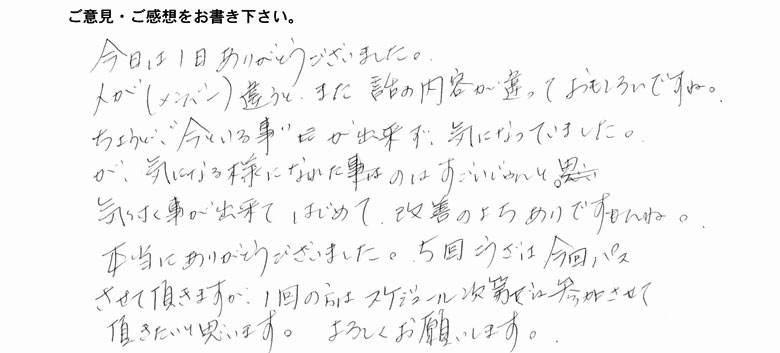 ご意見・ご感想をお書き下さい。
今日は1日ありがとうございました。
人が(メンバー)違うと、また話の内容が違っておもしろいですね。
ちょうど、"今といる事"が出来ず、気になっていました。
が、気になる様になれた事はのはすごいじゃんと。
気付く事が出来てはじめて、改善のよちありですもんね。
本当にありがとうございました。5回こうざは今回パス
させて頂きますが、1回の方はスケジュール次第では参加させて
頂きたいと思います。よろしくお願いします。